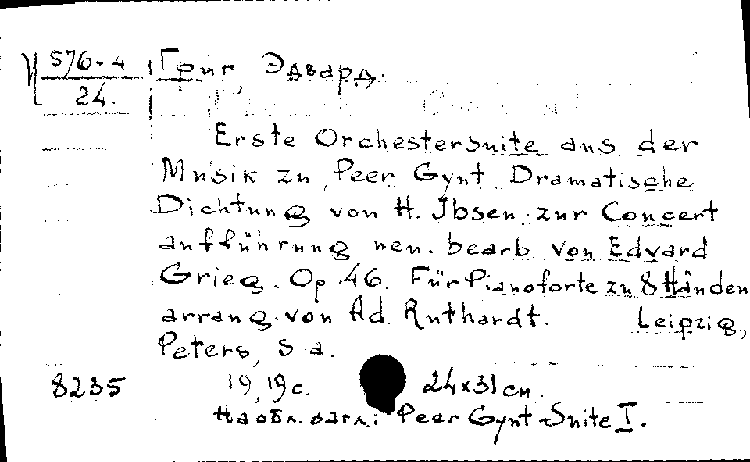 И 576-4 Григ, Эдвард.
24.
Erste Orchestersuite aus der
Musik zu Peer Gynt Dramatische
Dichtung von H. Jbsen zur Concert
aufführung neu. bearb von Edvard
Grieg. Op. 46. Für Pianoforte zu 8 Händen
arrang. von Ad. Ruthardt. Leipzig,
Peters, s a.
8235 19, 19 с. 24x31 см.
На обл. загл.: Peer Gynt-Suite I.